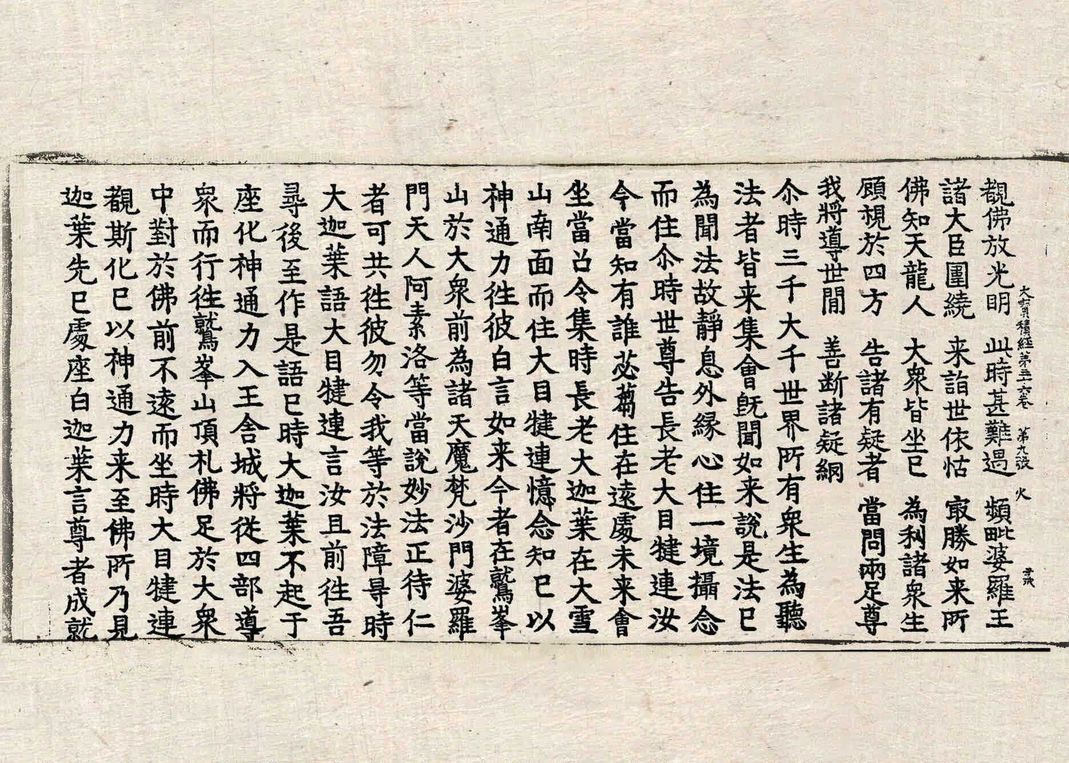 大寶積經第三十卷 第九張 火
觀佛放光明 此時甚難遇 頻毗婆羅王
諸大臣圍繞 来詣世依怙 冣勝如来所
佛知天龍人 大衆皆坐已 為利諸衆生
顧視於四方 告諸有疑者 當問兩足尊
我將導世間 善断諸疑網
尒時三千大千世界所有衆生為聽
法者皆来集會旣聞如来說是法已
為聞法故靜息外緣心住一境攝念
而住尒時世尊告長老大目犍連汝
今當知有誰苾蒭住在遠處未来會
坐當召令集時長老大迦葉在大雪
山南面而住大目犍連憶念知已以
神通力徃彼白言如来今者在鷲峯
山於大衆前為諸天魔梵沙門婆羅
門天人阿素洛等當說妙法正待仁
者可共徃彼勿令我等於法障㝵時
大迦葉語大目犍連言汝且前徃吾
尋後至作是語已時大迦葉不起于
座化神通力入王舍城將從四部導
衆而行徃鷲峯山頂札佛足於大衆
中對於佛前不遠而坐時大目犍連
觀斯化已以神通力来至佛所乃見
迦葉先已處座白迦葉言尊者成就